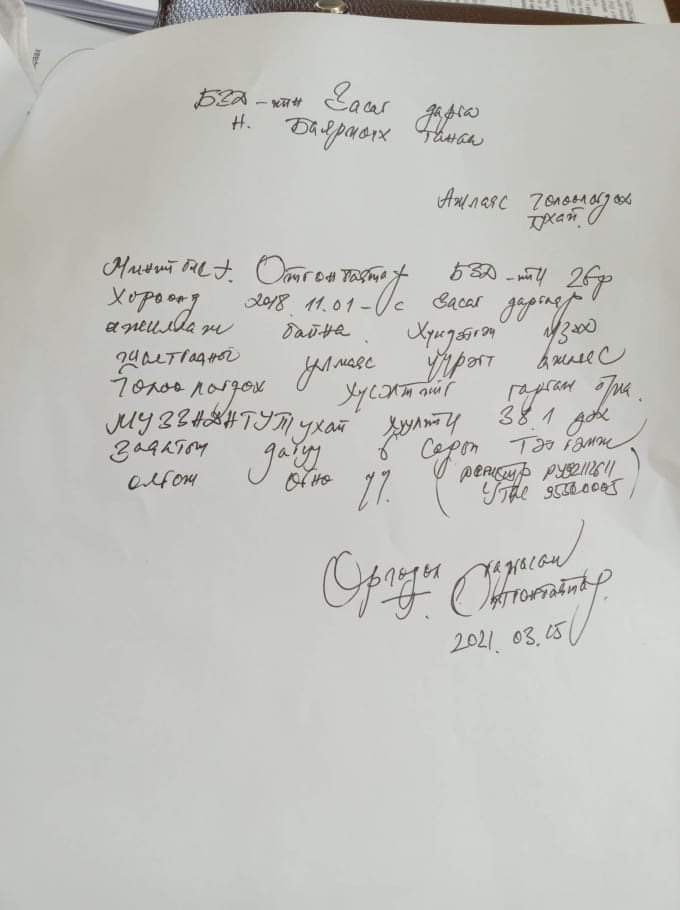 БЗД-ийн Засаг дарга
Н. Баярмөнх танаа
Ажлаас чөлөөлөгдөх
тухай
Миний бие Отгонбаяр БЗД-ийн 26р
Хороонд 2018.11.01-с Засаг даргаар
ажиллаж байна. Хүндэтгэн үзэх
шалтгааны улмаас үүрэгт ажлаас
Чөлөөлөгдөх хүсэлтийг гаргаж
МУЗЗНДНТУТухай хуулийн 38.1 дэх
Заалтын дагуу 6 сарын тэтгэмж
олгож өгнө үү. (регистр
Утас
Өргөдөл гаргасан
Отгонбаяр
2021.03.15